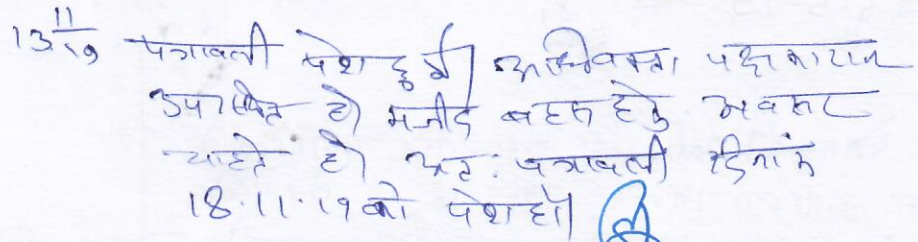 13 11/19 पत्रावली पेश हुई। अधिवक्ता पक्षकारान
उपस्थित है। मजीद बहस हेतु अवसर
चाहते है। अतः पत्रावली दिनांक
18.11.19 को पेश हो।